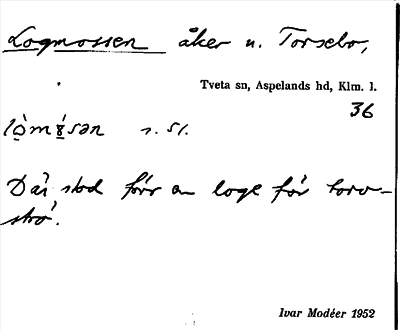 Logmossen åker u. Torsebo,
Tveta sn, Aspelands hd, Klm. l.
36
s. 51.
Där stod förr en loge för torv-
strö.
Ivar Modéer 1952